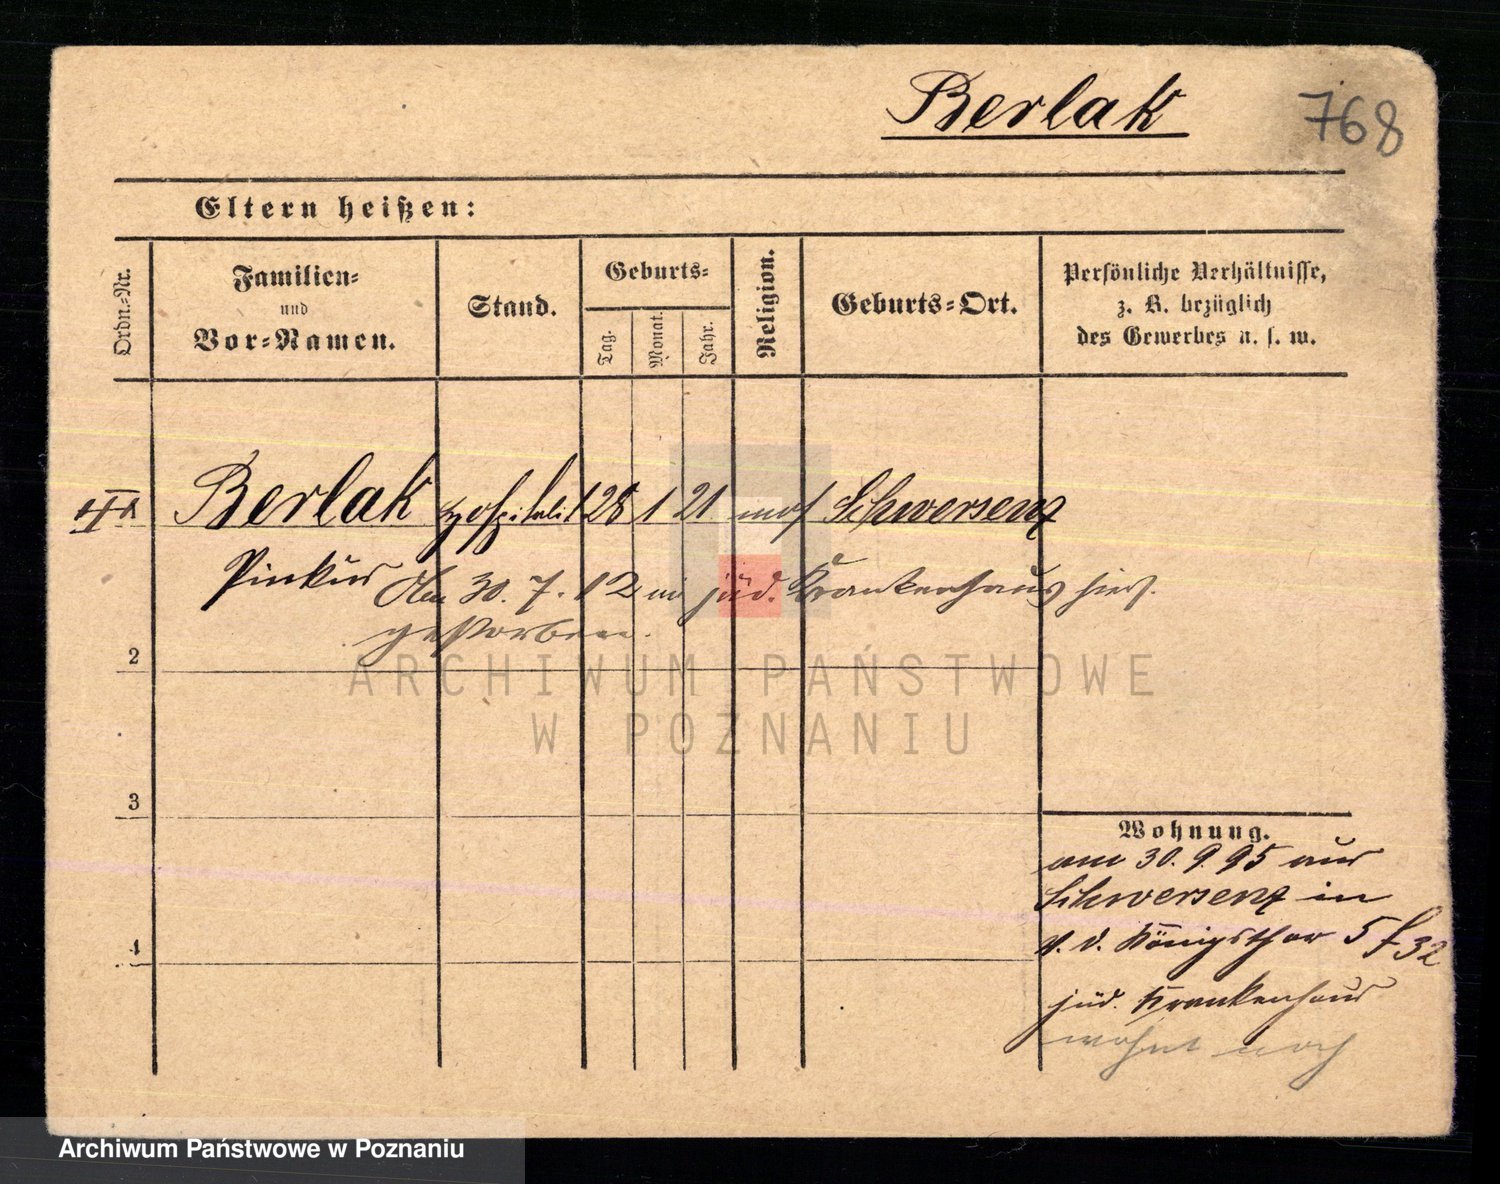 Berlak
768
Eltern heißen:
Ordn.-Nr.
Familien-
und
Vor-Namen.
Stand.
Geburts-
Tag.
Monat.
Jahr.
Religion.
Geburts-Ort.
Persönliche Verhältnisse,
z. B. bezüglich
des Gewerbes u. s. w.
Berlak Hospitalit 28 1 21 mos Schwersenz
Pinkus
Am 30. 7. 12 im jüd. Krankenhaus hier.
gestorben.
2
3
4
Wohnung.
am 30.9.95 aus
Schwersenz in
v. d. Königsthor 5
jüd. Krankenhaus
wohnt noch
ARCHIWUM PAŃSTWOWE
W POZNANIU
Archiwum Państwowe w Poznaniu